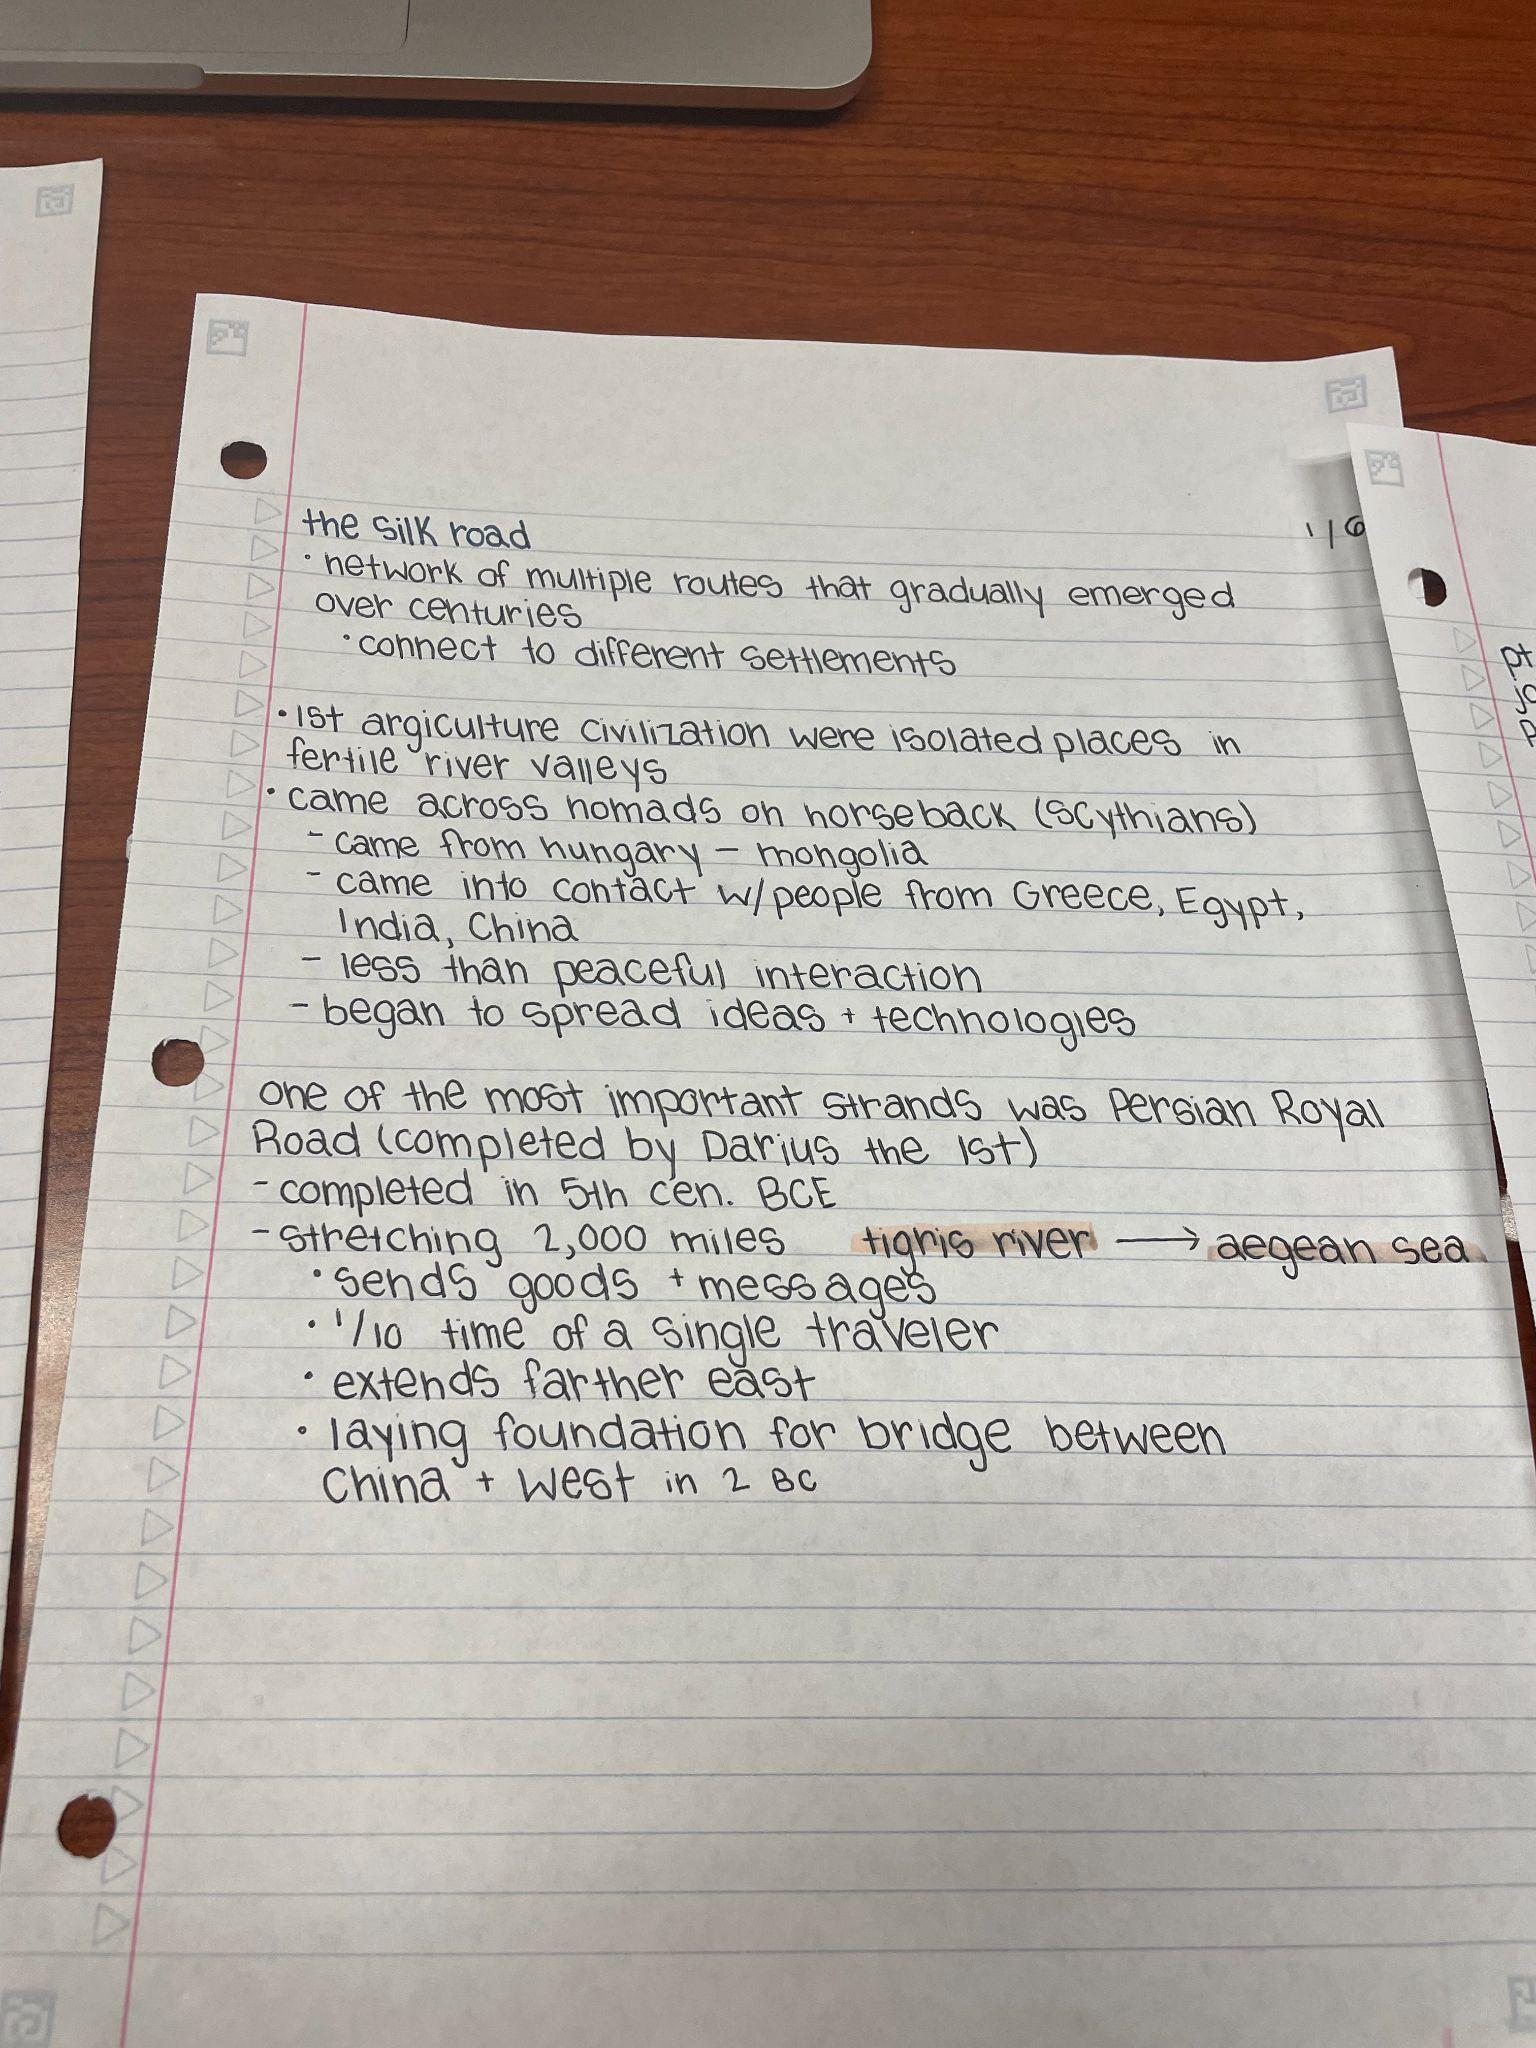 the silk road
1/6
• network of multiple routes that gradually emerged
over centuries
• connect to different settlements
• 1st argiculture civilization were isolated places in
fertile river valleys
• came across nomads on horseback (scythians)
- came from hungary – mongolia
- came into contact w/people from Greece, Egypt,
India, China
- less than peaceful interaction
- began to spread ideas + technologies
one of the most important strands was Persian Royal
Road (completed by Darius the 1st)
- completed in 5th cen. BCE
- stretching 2,000 miles tigris river → aegean sea
• sends goods + messages
• 1/10 time of a single traveler
• extends farther east
• laying foundation for bridge between
China + West in 2 BC
pt